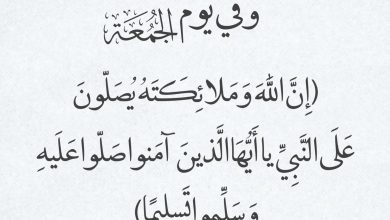 وفي يوم الجُمُعَة
(إِنَّ اللهَ وَمَلائِكَتَهُ يُصَلّونَ
عَلَى النَّبِيِّ يا أَيُّهَا الَّذينَ آمَنوا صَلّوا عَلَيهِ
وَسَلِّموا تَسليمًا)